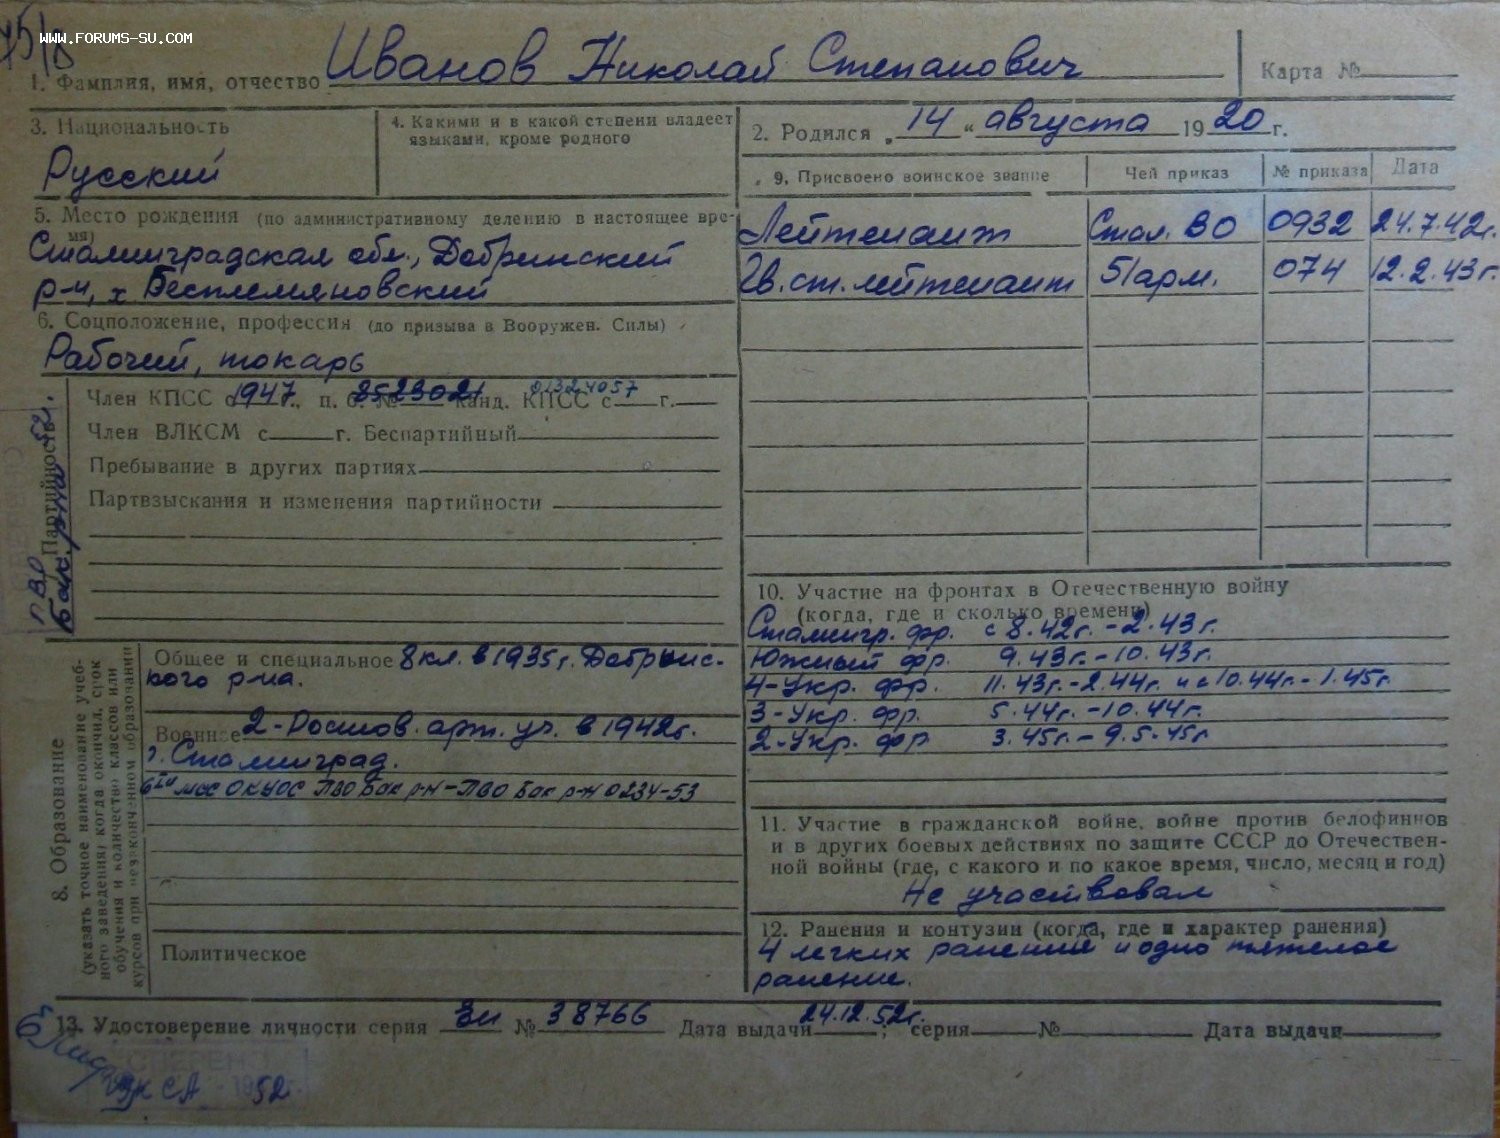 75/В
WWW.FORUMS-SU.COM
1. Фамилия, имя, отчество Иванов Николай Степанович
Карта №
3. Национальность
Русский
4. Какими и в какой степени владеет
языками, кроме родного
2. Родился „ 14 “ августа 19 20 г.
5. Место рождения (по административному делению в настоящее вре-
мя)
Сталинградская обл., Добринский
р-н, х Бесплемяновский
6. Соцположение, профессия (до призыва в Вооружен. Силы)
Рабочий, токарь
Партийность
Член КПСС с 1947 г., п. б. № 2523021 канд. КПСС с г.
01324057
Член ВЛКСМ с г. Беспартийный
Пребывание в других партиях
Партвзыскания и изменения партийности
9. Присвоено воинское звание Чей приказ № приказа Дата
Лейтенант Стал. ВО 0932 24.7.42г.
Гв. ст. лейтенант 51 арм. 074 12.2.43г.
8. Образование
(указать точное наименование учеб-
ного заведения, когда окончил, срок
обучения и количество классов или
курсов при незаконченном образовании)
Общее и специальное 8 кл. в 1935 г. Добринс-
кого р-на.
Военное 2-Ростов. арт. уч. в 1942г.
г. Сталинград.
ПВО Бак р-н - ПВО Бак р-н 0234-53
Политическое
10. Участие на фронтах в Отечественную войну
(когда, где и сколько времени)
Сталингр. фр. с 8.42г. - 2.43г.
Южный фр. 9.43г. - 10.43г.
4-Укр. фр. 11.43г. - 2.44г. и с 10.44г. - 1.45г.
3-Укр. фр. 5.44г. - 10.44г.
2-Укр. фр 3.45г. - 9.5.45г
11. Участие в гражданской войне, войне против белофиннов
и в других боевых действиях по защите СССР до Отечествен-
ной войны (где, с какого и по какое время, число, месяц и год)
Не участвовал
12. Ранения и контузии (когда, где и характер ранения)
4 легких ранения и одно тяжелое
ранение.
13. Удостоверение личности серия ЗИ № 38766 Дата выдачи 24.12.52г.; серия № Дата выдачи
СА 52